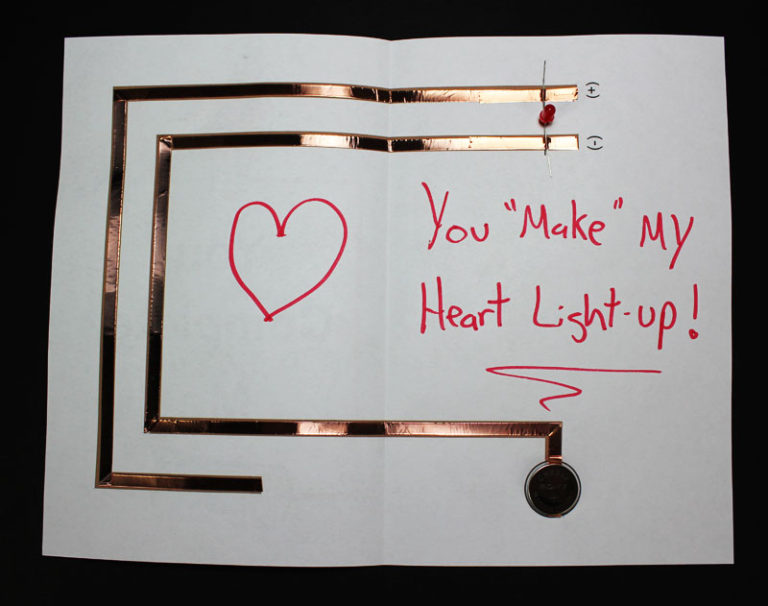 (+)
(-)
You "Make" My
Heart Light-up!